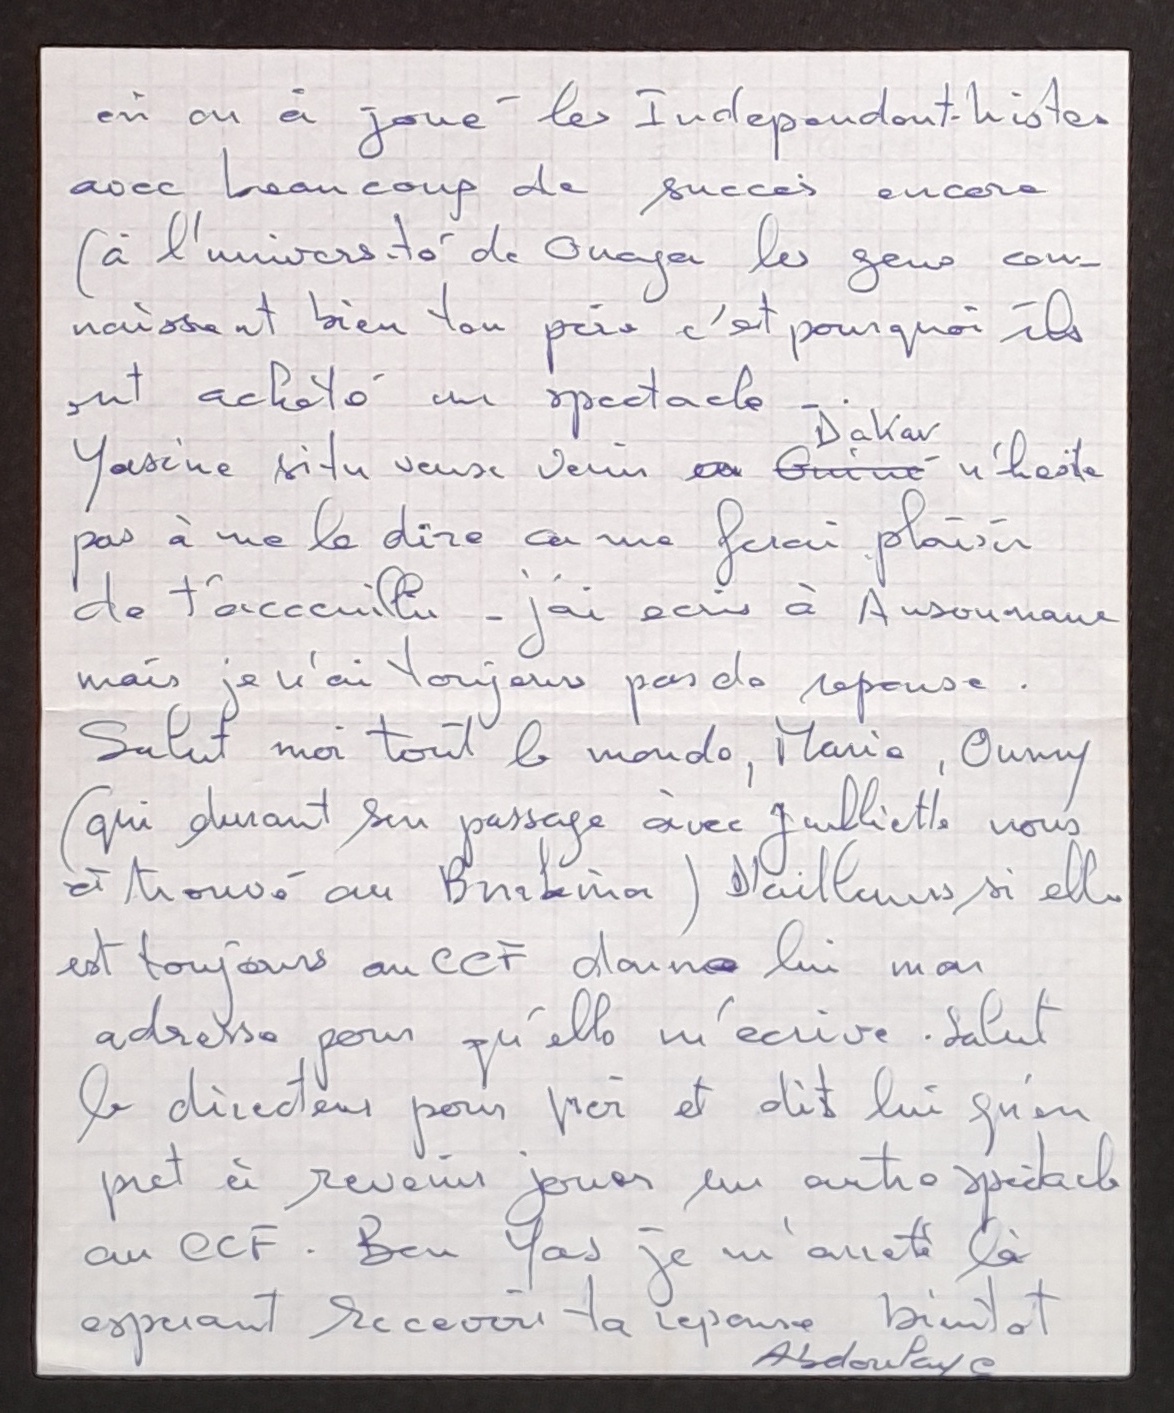 où on à joué les Independant-histes
avec beaucoup de succès encore
(à l'université de Ouaga les gens con-
naissent bien ton père c'est pourquoi ils
ont acheté un spectacle -.
Yasine si tu veux venir en Guiné Dakar n'hesite
pas à me le dire ca me ferai plaisir
de t'acceuillir - j'ai ecris à Ansoumane
mais je n'ai toujours pas de reponse.
Salut moi tout le monde, Maria, Oumy
(qui durant son passage avec Juilliette nous
à trouvé au Burkina) D'ailleurs si elle
est toujours au CCF donne lui mon
adresse pour qu'elle m'ecrive. Salut
le directeur pour moi et dit lui qu'on
pret à revenir jouer un autre spectacle
au CCF. Ben Yas je m'arrete là
esperant recevoir ta reponse bientot
Abdoulaye